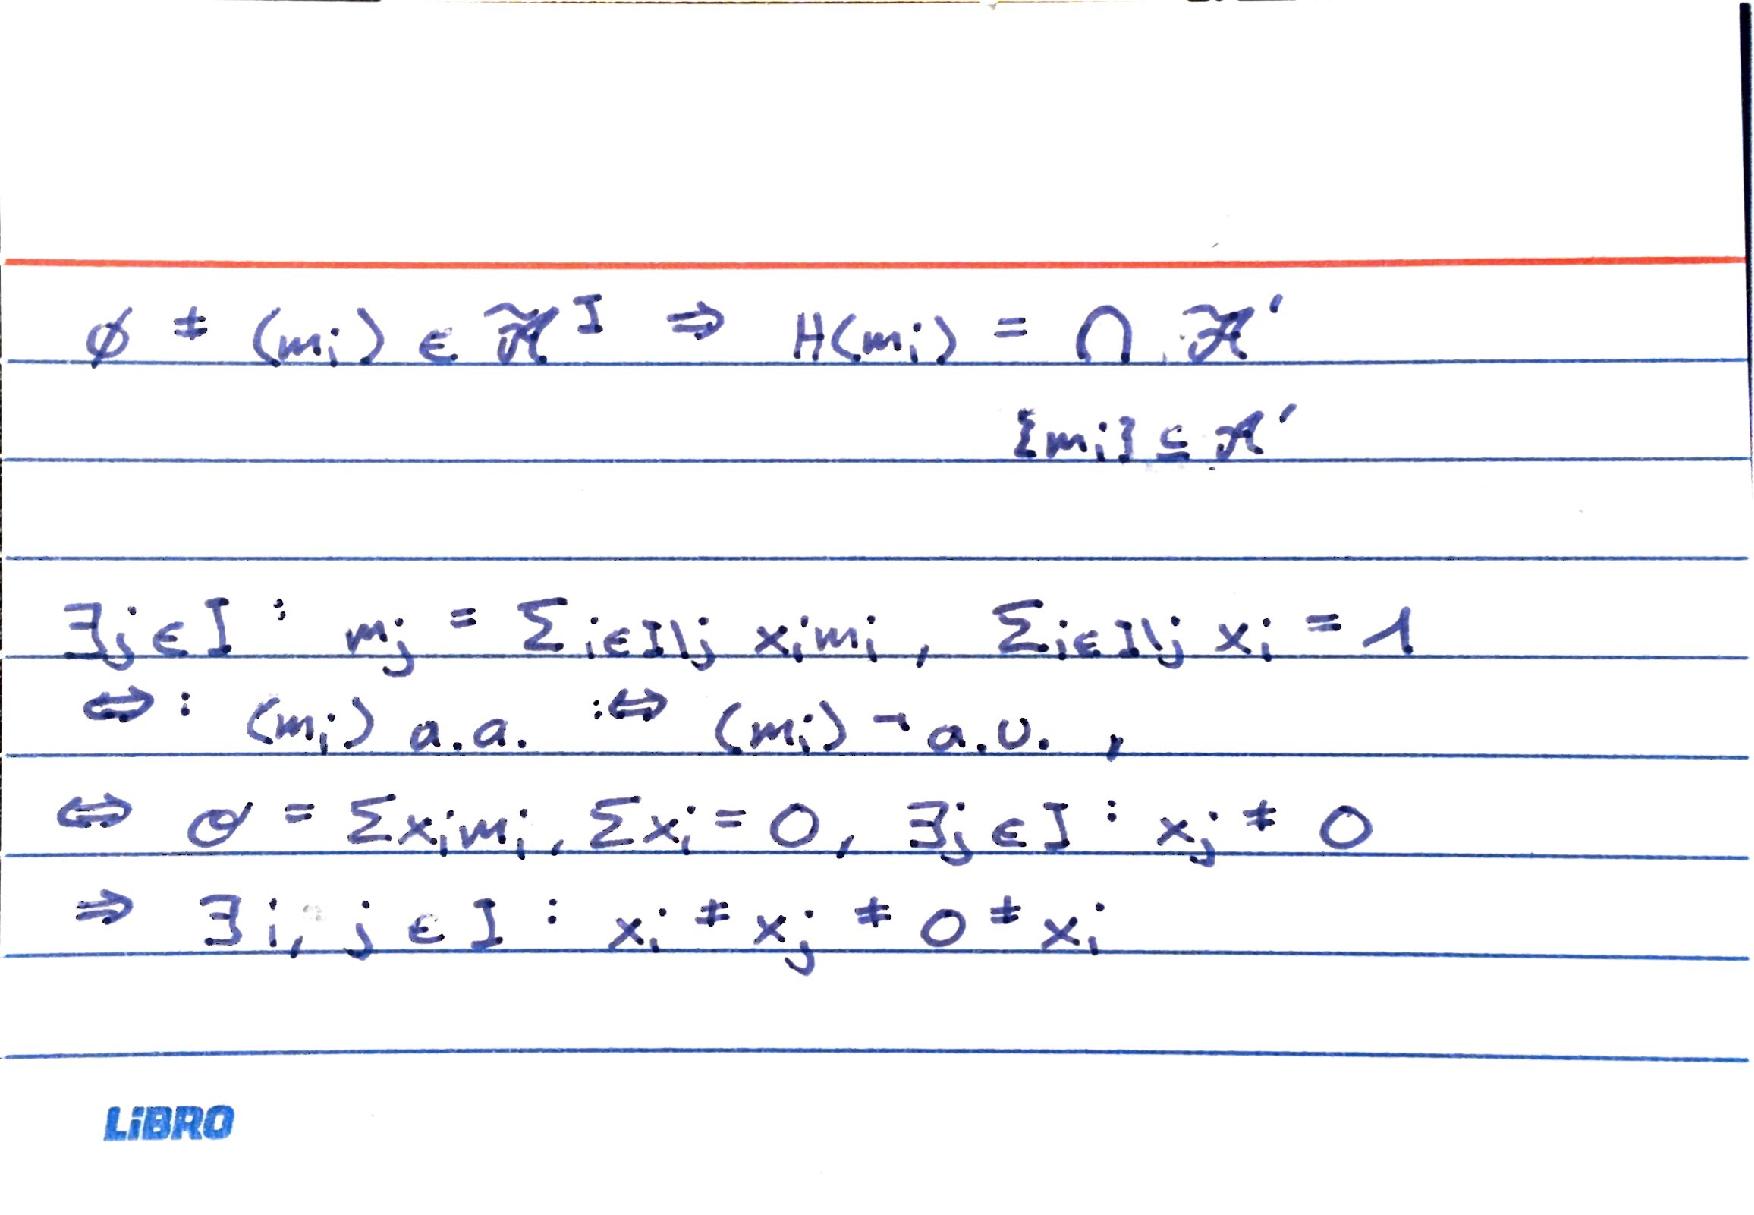 ∅ ≠ (mᵢ) ∈ 𝒜̃ᴵ ⇒ H(mᵢ) = ∩ 𝒜̃′
{mᵢ} ⊆ 𝒜′
∃j∈I : mⱼ = Σi∈I\j xᵢmᵢ , Σi∈I\j xᵢ = 1
⇔: (mᵢ) a.a. :⇔ (mᵢ) ¬ a.u. ,
⇔ σ = Σxᵢmᵢ, Σxᵢ = 0, ∃j∈I : xⱼ ≠ 0
⇒ ∃ i, j ∈ I : xᵢ ≠ xⱼ ≠ 0 ≠ xᵢ
LiBRO